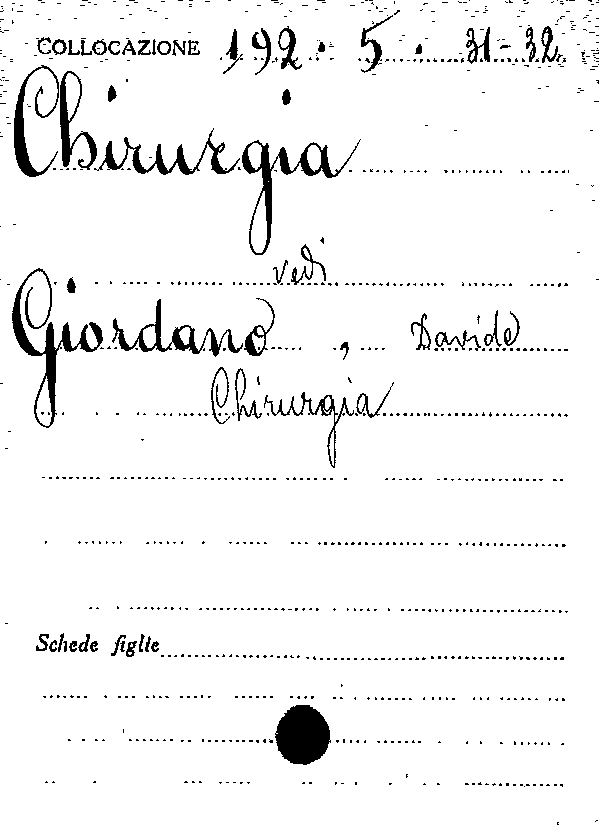 COLLOCAZIONE 192. 5. 31-32
Chirurgia
vedi
Giordano, Davide
Chirurgia
Schede figlie